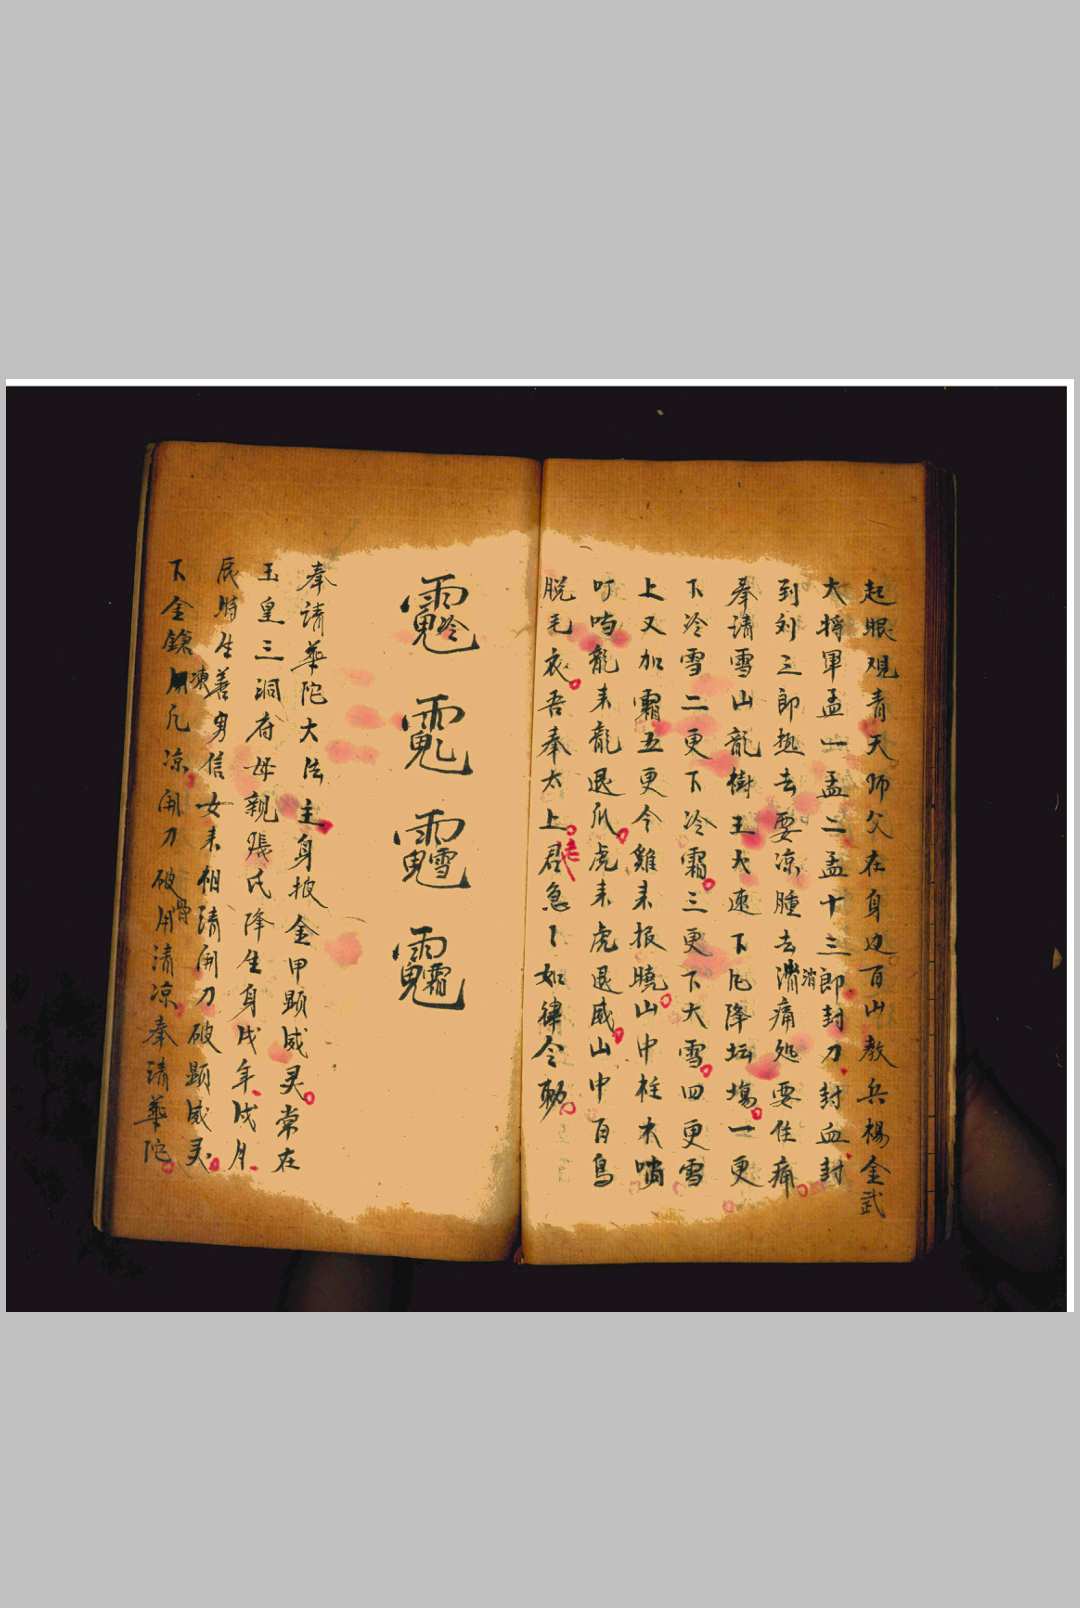 起眼观青天师父在身边百山教兵楊金武
大将軍孟一孟二孟十三郎封刀封血封
到刘三郎热去要凉腫去消痛処要住痛
奉请雪山龍樹王大速下凡降坛塲一更
下冷雪二更下冷霜三更下大雪四更雪
上又加霜五更令雞来报曉山中柱木哨
叮噹龍来龍退爪虎来虎退威山中百鳥
脱毛衣吾奉太上君急〻如律令勅
奉请華陀大法主身披金甲顕威灵常在
玉皇三洞府母親張氏降生身戊年戊月
辰時生善男信女来相请開刀破顕威灵
下金鎗用凡凉開刀破骨用清凉奉请華陀